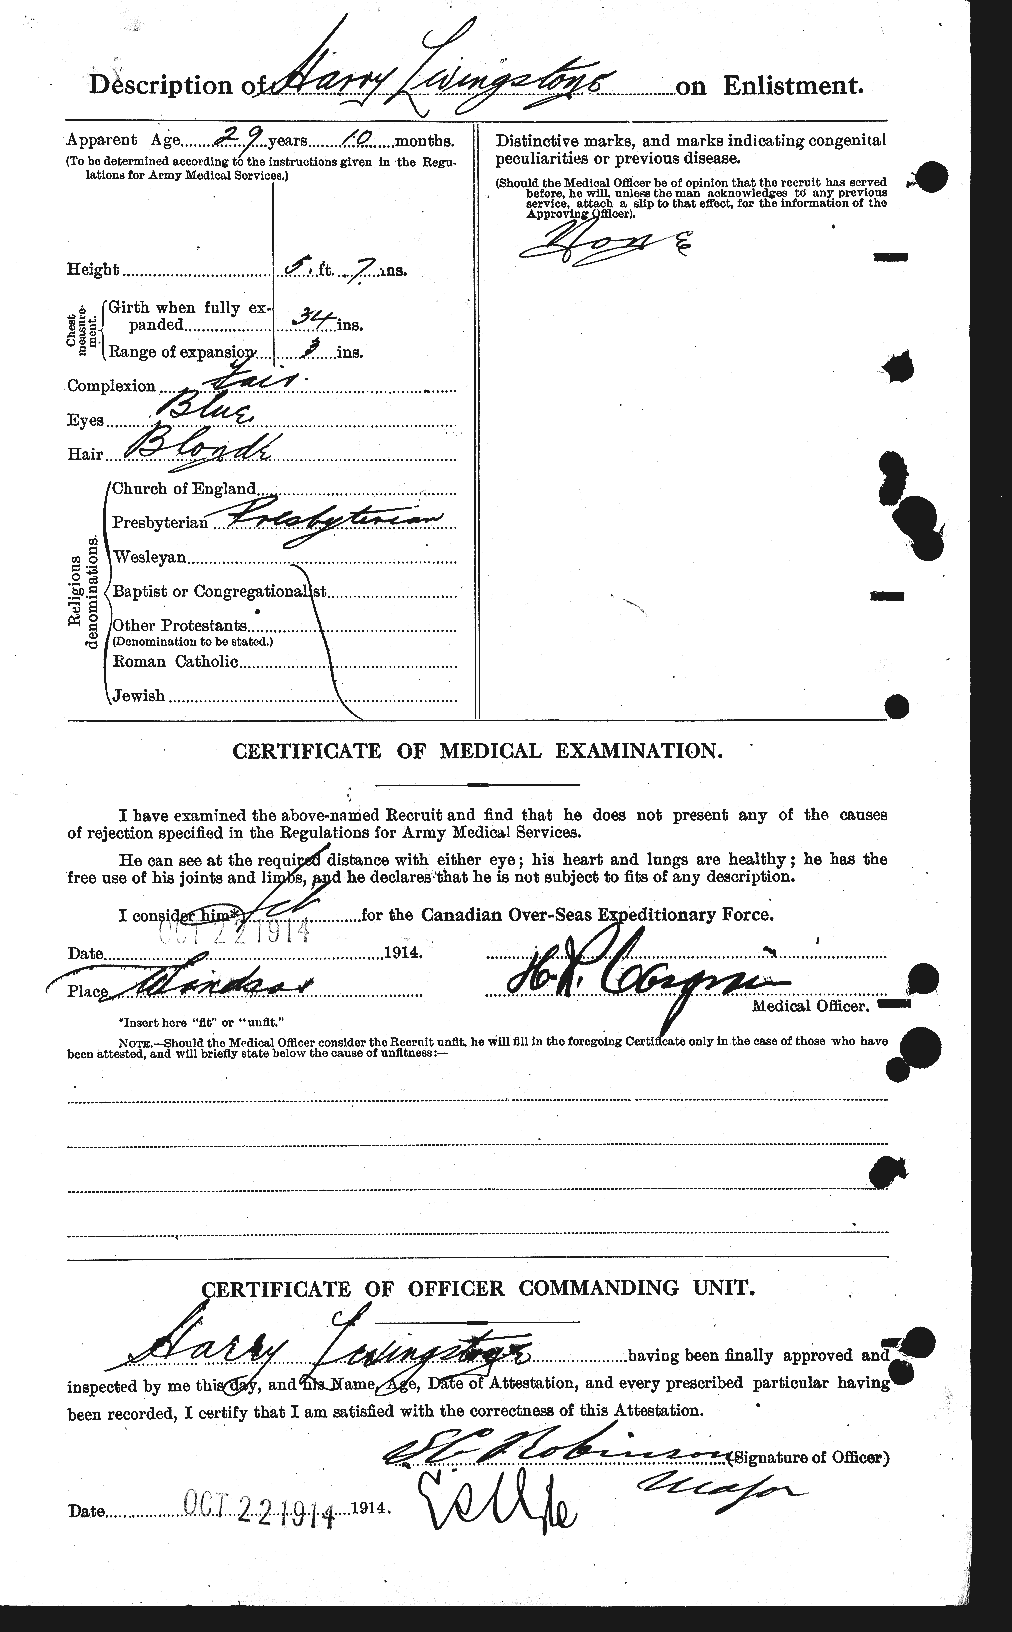 Description of Harry Livingstone on Enlistment.
Apparent Age 29 years 10 months.
(To be determined according to the instructions given in the Regu-
lations for Army Medical Services.)
Height 5 ft. 7 ins.
Chest measure-ment.
Girth when fully ex-
panded 34 ins.
Range of expansion 3 ins.
Complexion Fair.
Eyes Blue
Hair Blonde
Religious denominations.
Church of England
Presbyterian Presbyterian
Wesleyan
Baptist or Congregationalist
Other Protestants
(Denomination to be stated.)
Roman Catholic
Jewish
Distinctive marks, and marks indicating congenital
peculiarities or previous disease.
(Should the Medical Officer be of opinion that the recruit has served
before, he will, unless the man acknowledges to any previous
service, attach a slip to that effect, for the information of the
Approving Officer).
None
CERTIFICATE OF MEDICAL EXAMINATION.
I have examined the above-named Recruit and find that he does not present any of the causes
of rejection specified in the Regulations for Army Medical Services.
He can see at the required distance with either eye; his heart and lungs are healthy; he has the
free use of his joints and limbs, and he declares that he is not subject to fits of any description.
I consider him* fit for the Canadian Over-Seas Expeditionary Force.
OCT 22 1914
Date 1914.
Place Windsor
H.R.
Medical Officer.
*Insert here "fit" or "unfit."
NOTE.—Should the Medical Officer consider the Recruit unfit, he will fill in the foregoing Certificate only in the case of those who have
been attested, and will briefly state below the cause of unfitness:—
CERTIFICATE OF OFFICER COMMANDING UNIT.
Harry Livingstone having been finally approved and
inspected by me this day, and his Name, Age, Date of Attestation, and every prescribed particular having
been recorded, I certify that I am satisfied with the correctness of this Attestation.
S C Robinson (Signature of Officer)
Major
Date OCT 22 1914 1914.